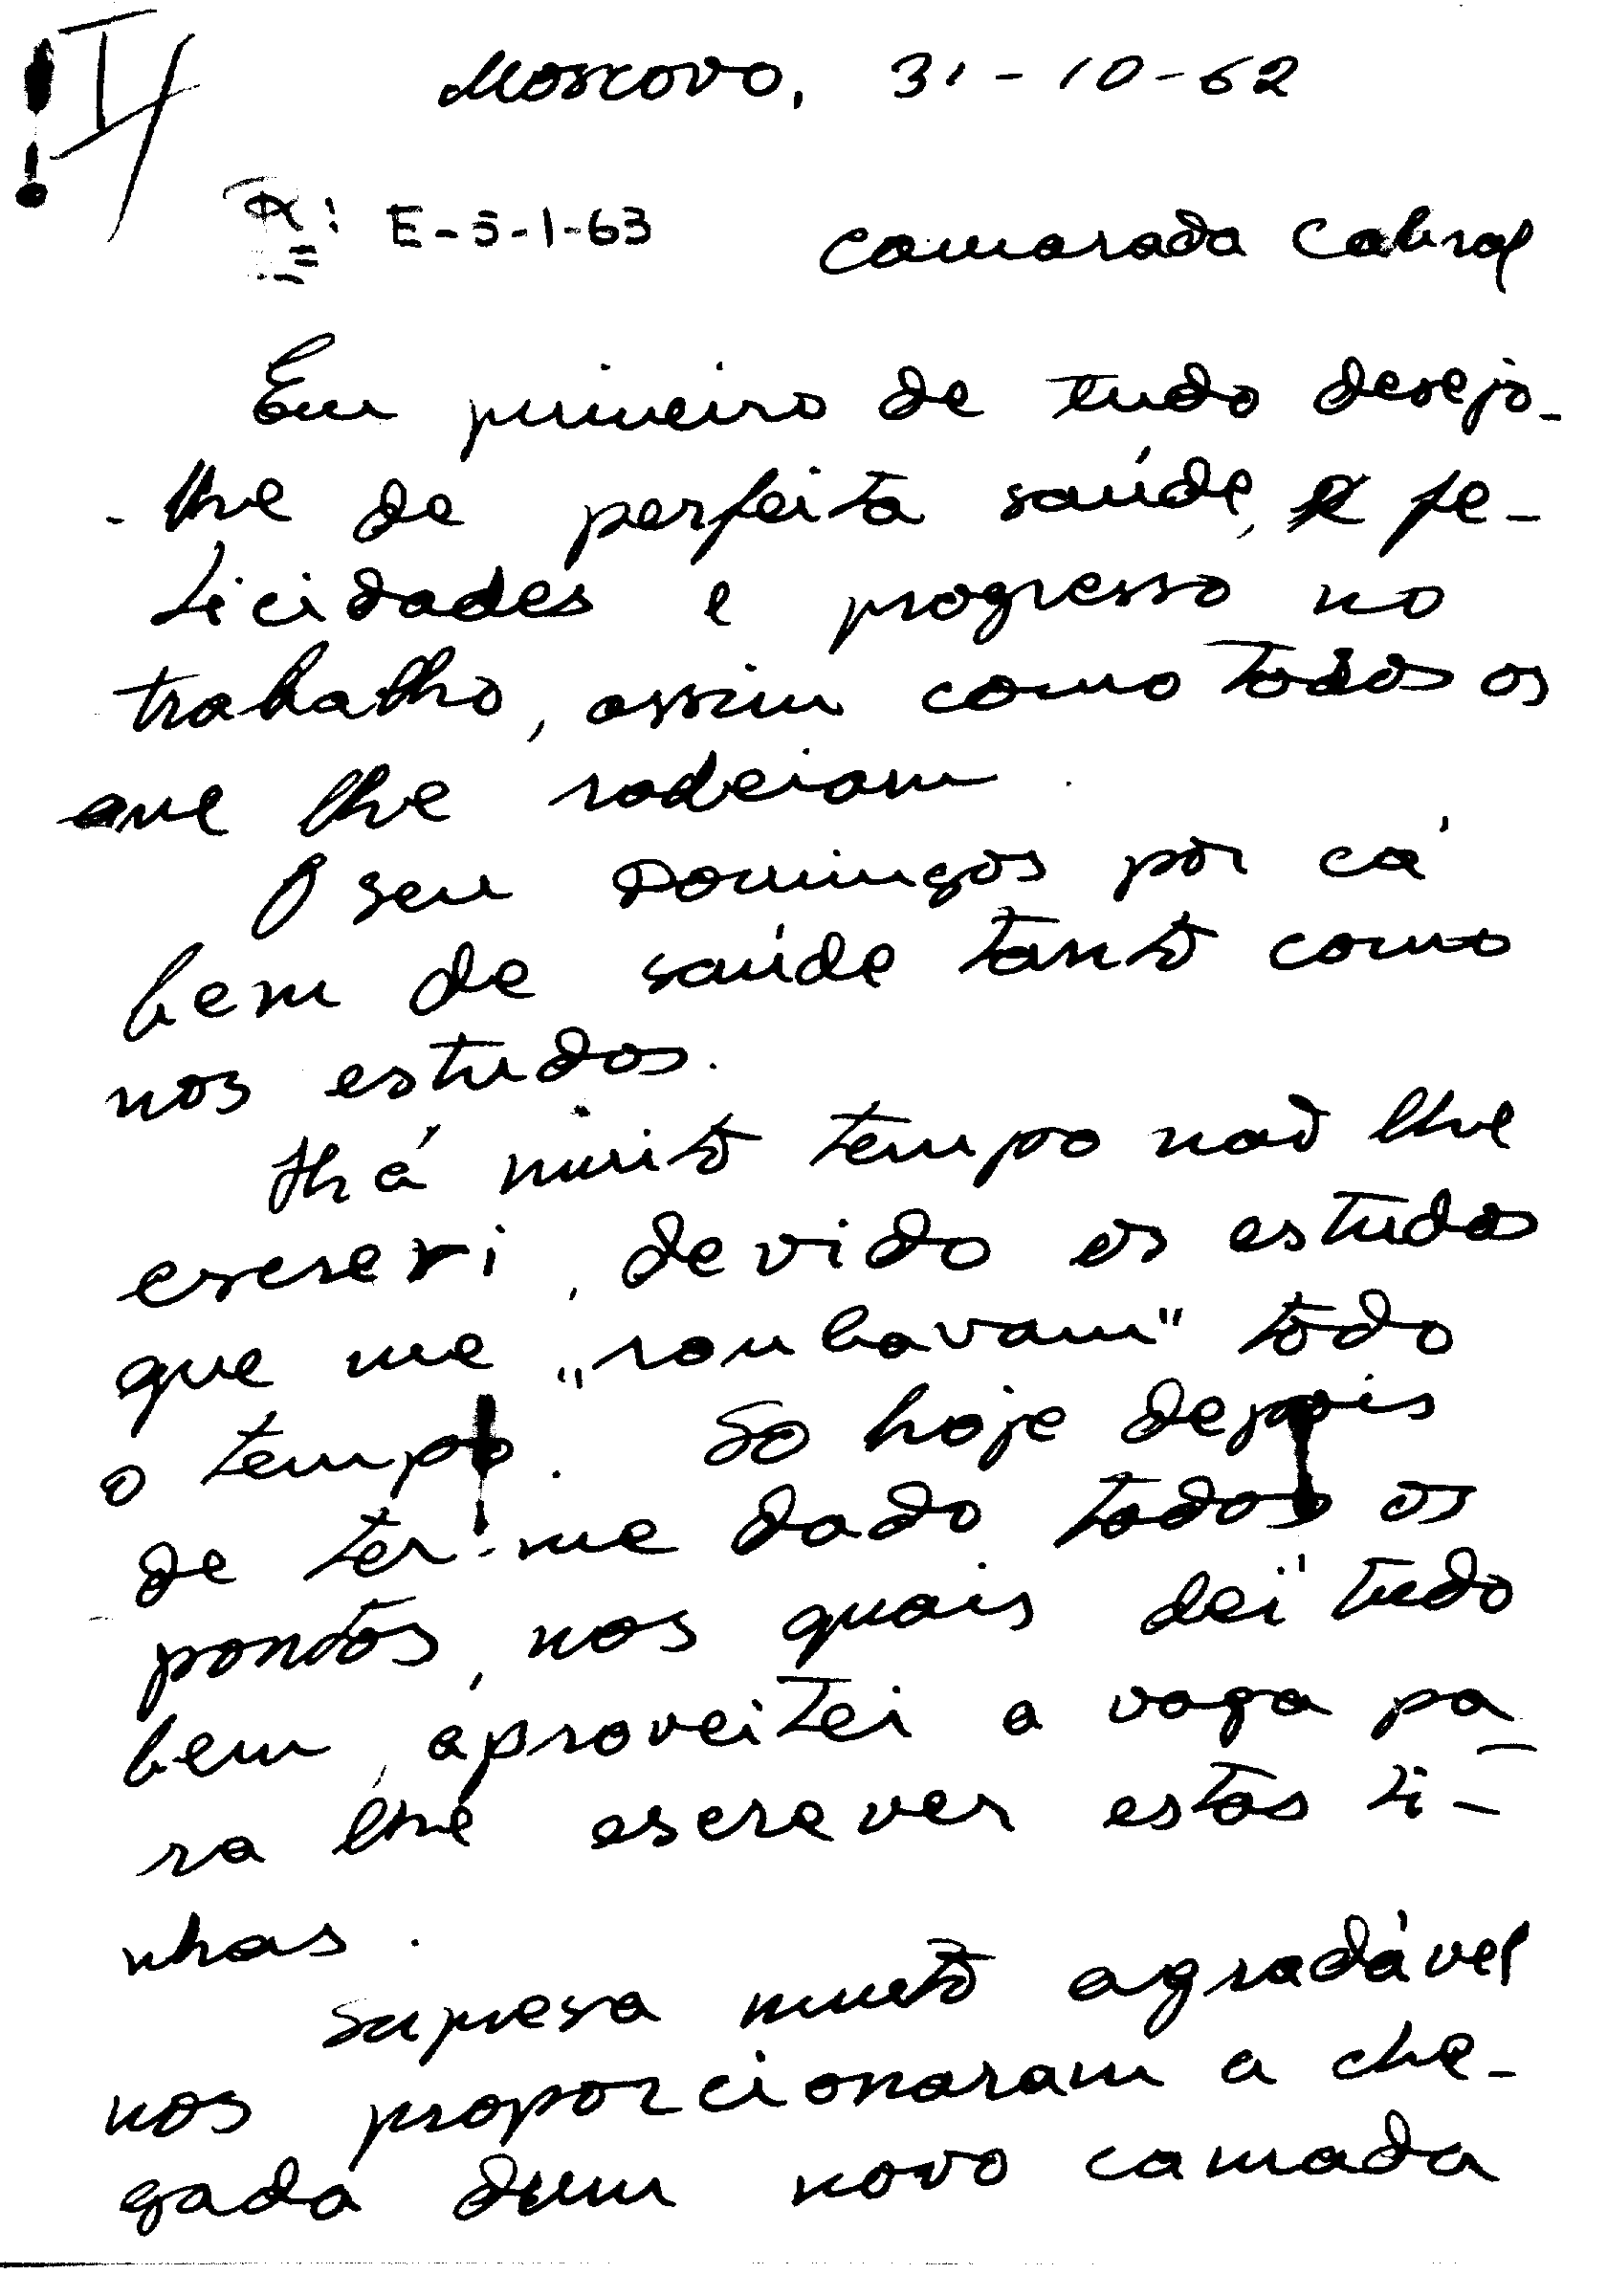 Moscovo, 31-10-62
R: E-5-1-63
Camarada Cabral
Em primeiro de tudo desejo-
-lhe de perfeita saúde, fe-
licidades e progresso no
trabalho, assim como todos os
que lhe rodeiam.
O seu Domingos por cá
bem de saúde tanto como
nos estudos.
Há muito tempo não lhe
escrevi, devido os estudos
que me "roubavam" todo
o tempo. So hoje depois
de ter-me dado todos os
pontos, nos quais dei tudo
bem, aproveitei a vaga pa
ra lhe escrever estas li-
nhas.
Supresa muito agradável
nos proporcionaram a che-
gada dum novo camada